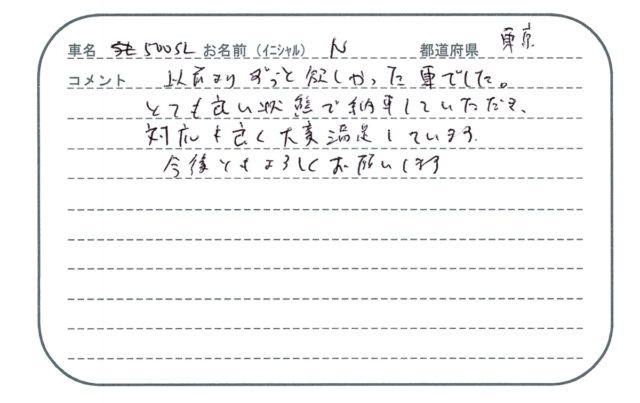 車名 500SL お名前（イニシャル） N 都道府県 東京
コメント 以前よりずっと欲しかった車でした。
とても良い状態で納車していただき、
対応も良く大変満足しています。
今後ともよろしくお願いします